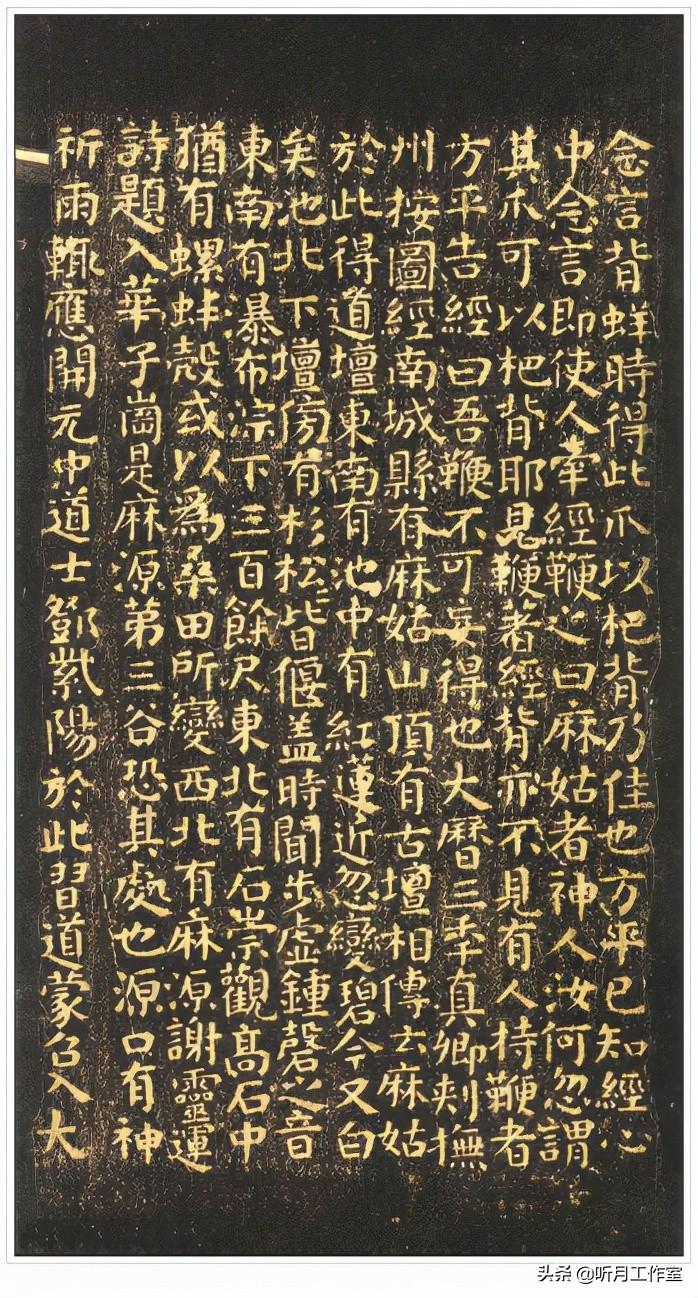 念言背蛘時得此爪以杷背乃佳也方平已知經心
中念言即使人牽經鞭之曰麻姑者神人汝何忽謂
其爪可以杷背耶見鞭著經背亦不見有人持鞭者
方平告經曰吾鞭不可妄得也大曆三年真卿刺撫
州按圖經南城縣有麻姑山頂有古壇相傳云麻姑
於此得道壇東南有池中有紅蓮近忽變碧今又白
矣池北下壇傍有杉松皆偃盖時聞步虛鍾磬之音
東南有瀑布淙下三百餘尺東北有石崇觀高石中
猶有螺蚌殼或以為桑田所變西北有麻源謝靈運
詩題入華子崗是麻源第三谷恐其處也源口有神
祈雨輒應開元中道士鄧紫陽於此習道蒙召入大
头条 @听月工作室